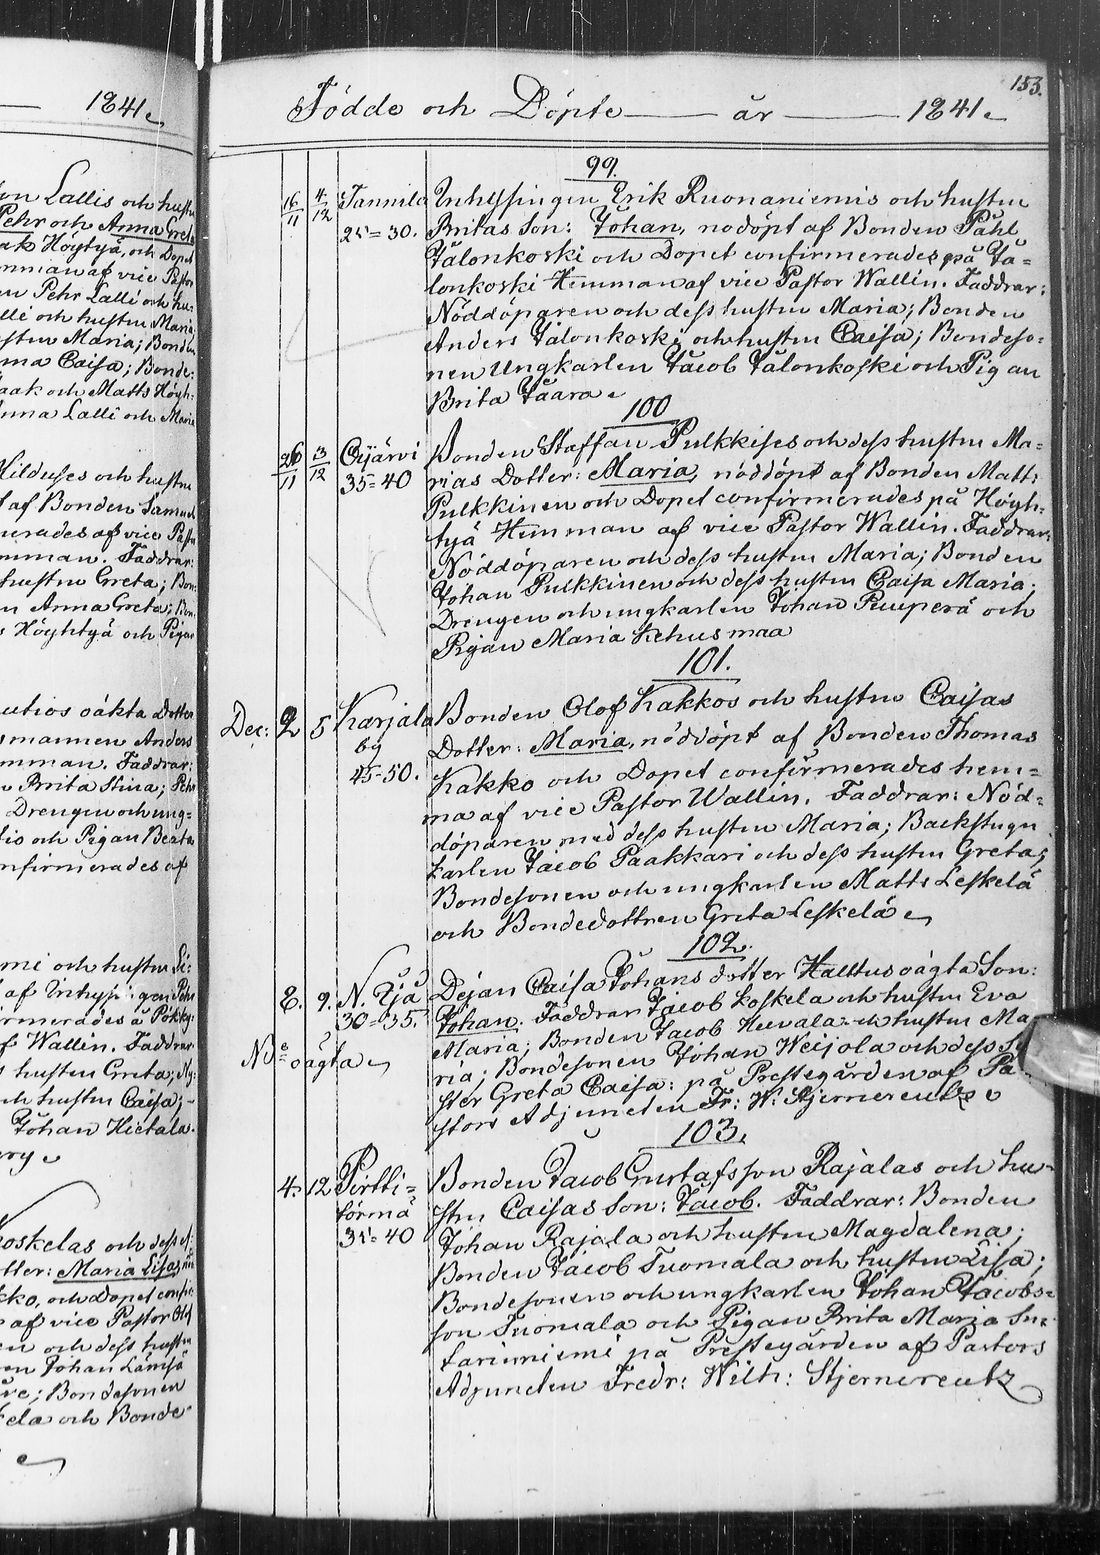 1841
on Lallis och hustru
Pehr och Anna Greta
ak Höytyä, och Dopet
mman af vice Pastor
Pehr Lalli och hu-
lli och hustru Maria
stru Maria; Bonden
na Caisa; Bonde-
aak och Matts Höyh-
Anna Lalli och Maria
och hustru
af Bonden Samuel
merades af vice Pastor
mman. Faddrar:
hustru Greta; Bon
Anna Greta; Bon
Höyhtyä och Pigan
oäkta Dotter
smannen Anders
mman. Faddrar:
Brita Stina; Pehr
Drengen och ung-
och Pigan Beata
nfirmerades af
mi och hustru Li-
af Inhysingen Pehr
irmerades å
af Wallin. Faddrar
hustru Greta; Ny-
och hustru Caisa;
Johan Hietala
oskelas och dess
tter: Maria Lisa,
kko, och Dopet confir-
af vice Pastor
en och dess hustru
en Johan Lämsä
Bondesonen
ela och Bonde
153.
Födde och Döpte — år — 1841
99.
16/11 4/12 Tannila Inhysingen Erik Ruonaniemis och hustru
25=30. Britas Son: Johan, nödöpt af Bonden Påhl
Jälonkoski och Dopet confirmerades på Jä=
lonkoski Hemman af vice Pastor Wallin. Faddrar:
Nöddöparen och dess hustru Maria; Bonden
Anders Jälonkoski och hustru Caisa; Bondeso=
nen Ungkarlen Jacob Jälonkoski och Pigan
Brita Jaara
100
26/11 3/12 Oijärvi Bonden Staffan Pulkkises och dess hustru Ma=
35=40 rias Dotter: Maria, nöddöpt af Bonden Matts
Pulkkinen och Dopet confirmerades på Höyh=
tyä Hemman af vice Pastor Wallin. Faddrar:
Nöddöparen och dess hustru Maria; Bonden
Johan Pulkkinen och dess hustru Caisa Maria;
Drengen och ungkarlen Johan Puuperä och
Pigan Maria Kehusmaa
101.
Dec: 2 5 Karjala Bonden Olof Kakkos och hustru Caisas
by Dotter: Maria, nöddöpt af Bonden Thomas
45-50. Kakko och Dopet confirmerades hem=
ma af vice Pastor Wallin. Faddrar: Nöd=
döparen med dess hustru Maria; Backstugu
karlen Jacob Paakkari och dess hustru Greta;
Bondesonen och ungkarlen Matts Leskelä
och Bondedottren Greta Leskelä
102.
8. 9. N. Ijå Dejan Caisa Johans dotter Halttus oägta Son:
30=35. Johan. Faddrar Jacob Koskela och hustru Eva
Maria; Bonden Jacob Heevala och hustru Ma
No oägta ria; Bondesonen Johan Weijola och dess Sy
ster Greta Caisa: på Prestegården af Pa
stors Adjuncten Fr: W: Stjerncreutz
103.
4. 12 Pirtti= Bonden Jacob Gustafsson Rajalas och hu-
törmä stru Caisas Son: Jacob. Faddrar: Bonden
35=40 Johan Rajala och hustru Magdalena;
Bonden Jacob Tuomala och hustru Lisa;
Bondesonen och ungkarlen Johan Jacobs=
son Tuomala och Pigan Brita Maria Su=
tariniemi på Prestegården af Pastors
Adjuncten Fredr: Wilh: Stjerncreutz